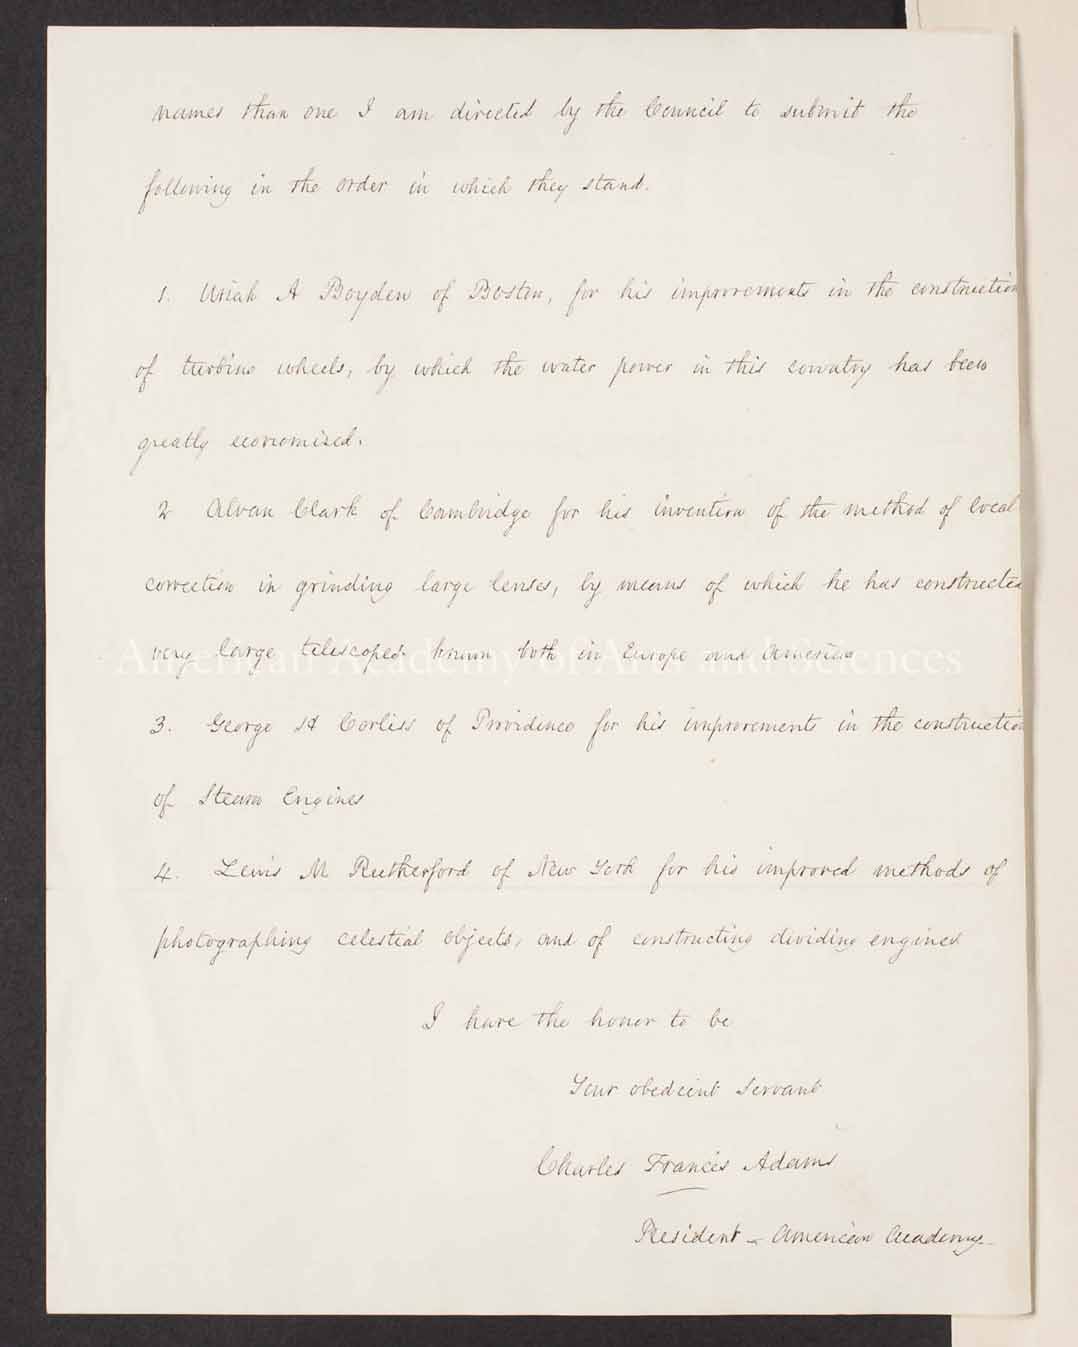 names than one I am directed by the Council to submit the
following in the order in which they stand.
1. Uriah A Boyden of Boston, for his improvements in the construction
of turbine wheels, by which the water power in this country has been
greatly economised.
2 Alvan Clark of Cambridge for his invention of the method of local
correction in grinding large lenses, by means of which he has constructed
very large telescopes known both in Europe and America
American Academy of Arts and Sciences
3. George H Corliss of Providence for his improvements in the construction
of Steam Engines
4. Lewis M Rutherford of New York for his improved methods of
photographing celestial objects, and of constructing dividing engines
I have the honor to be
Your obedient Servant
Charles Francis Adams
President - American Academy